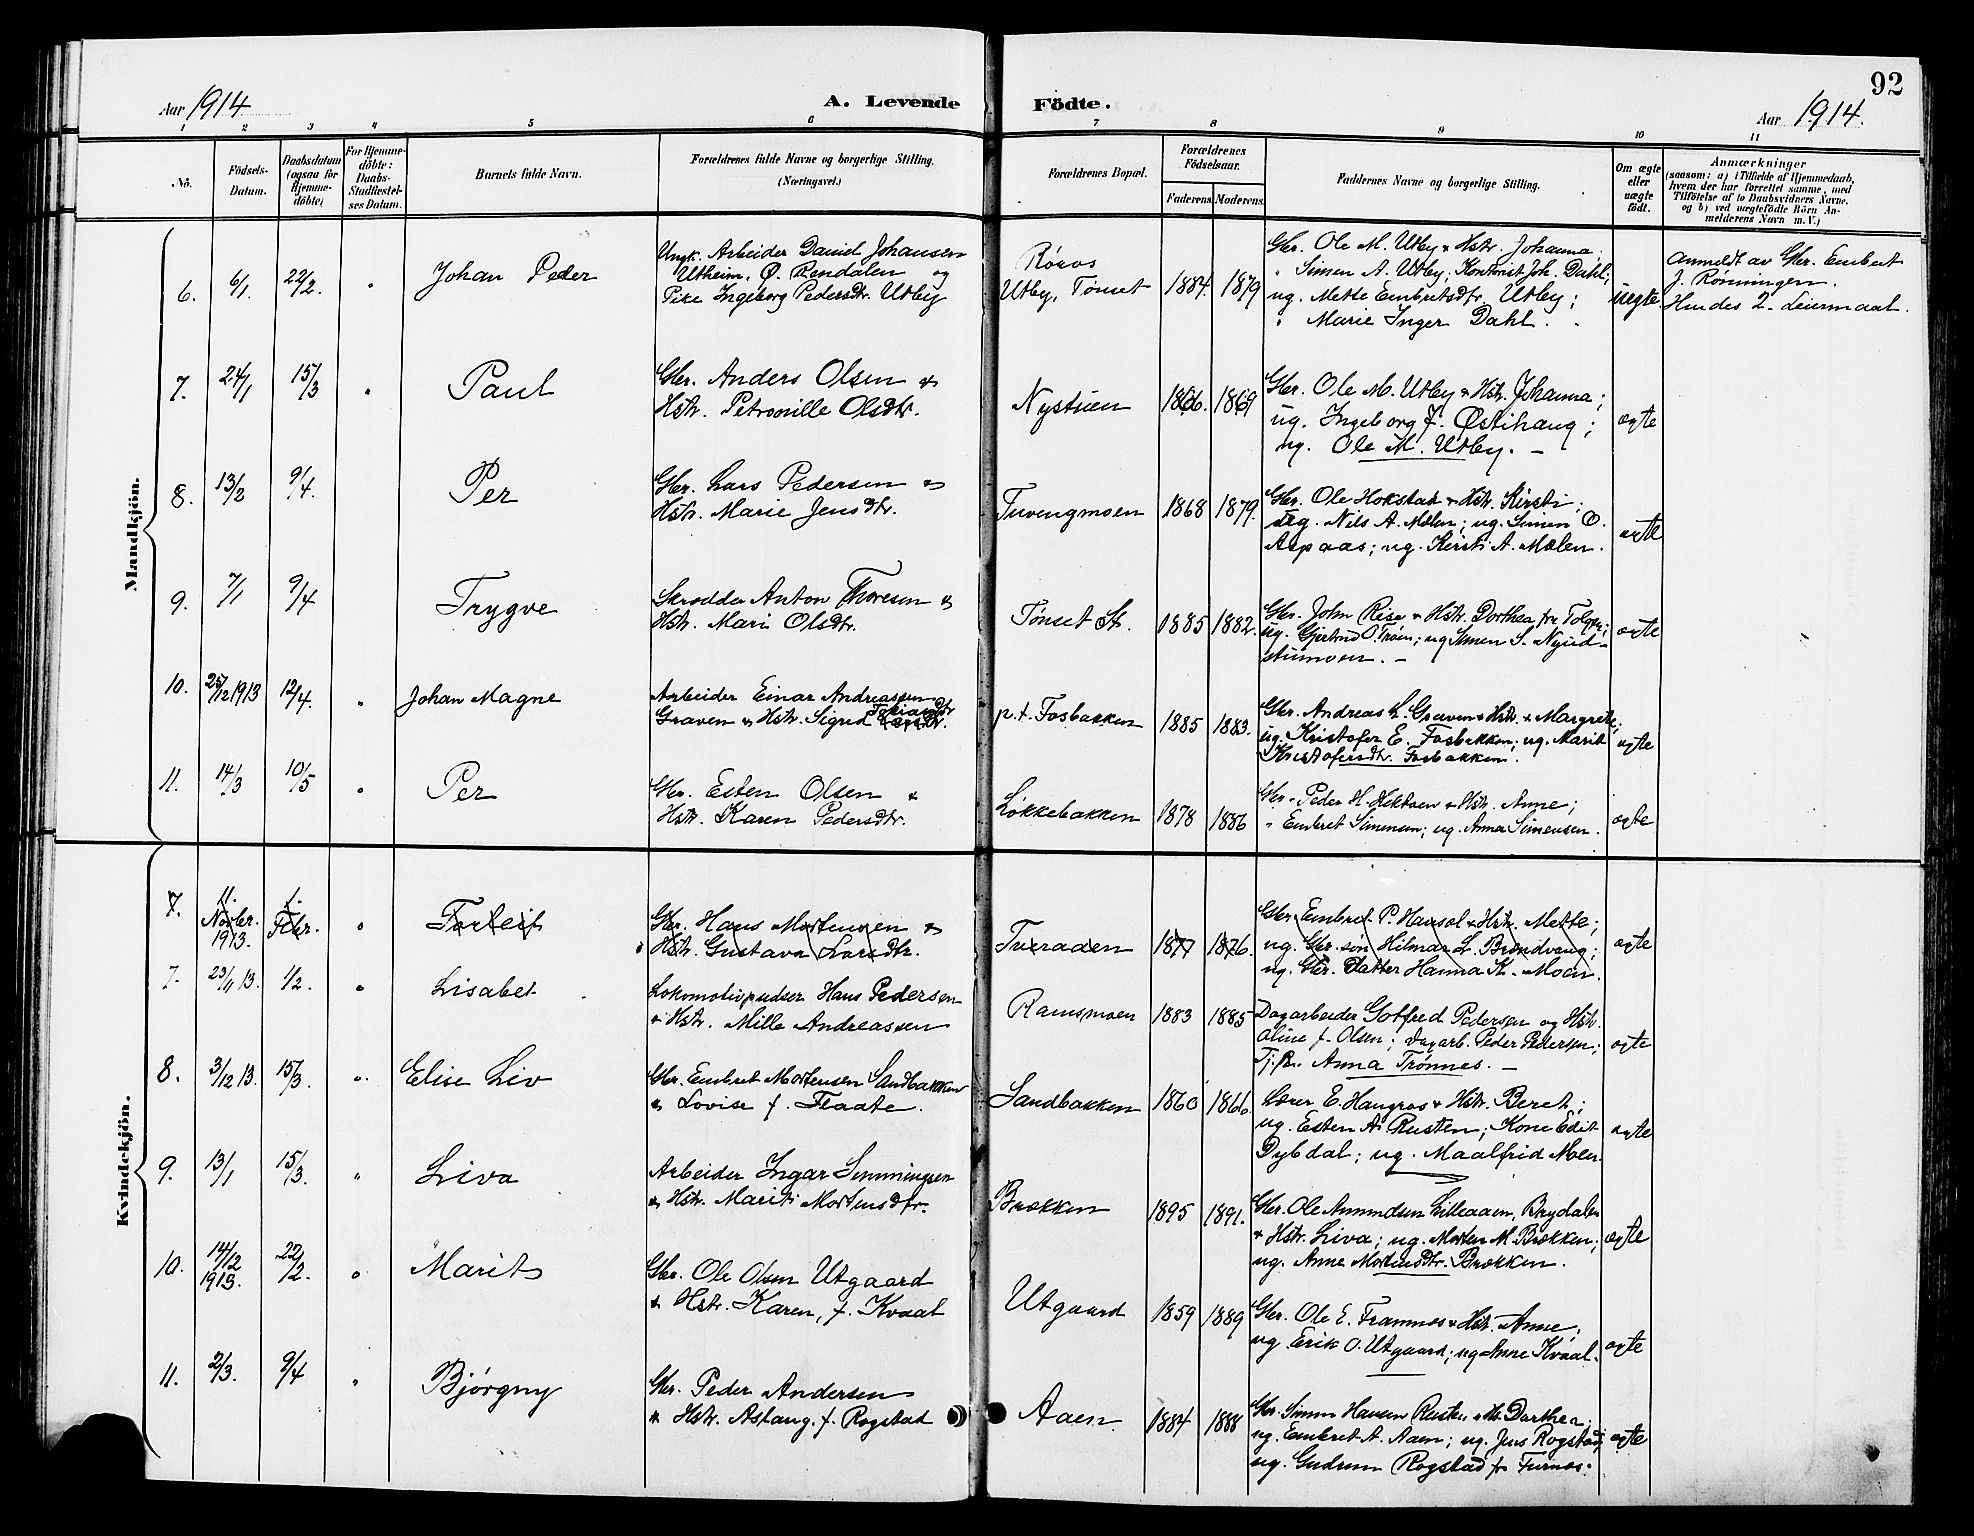 92
Aar 1914
A. Levende
Födte.
Aar 1914.
1 2 3 4 5 6 7 8 9 10 11
No.
Födsels-
Datum.
Daabsdatum
(ogsaa for
Hjemme-
döbte)
For Hjemme-
döbte:
Daabs-
Stadfæstel-
ses Datum.
Barnets fulde Navn.
Forældrenes fulde Navne og borgerlige Stilling.
(Næringsvei.)
Forældrenes Bopæl.
Forældrenes
Födselsaar.
Faderens Moderens
Faddernes Navne og borgerlige Stilling.
Om ægte
eller
uægte
født.
Anmærkninger
(saasom: a) i Tilfælde af Hjemmedaab,
hvem der har forrettet samme, med
Tilföielse af to Daabsvidners Navne.
og b) ved uægtefödte Börn An-
melderens Navn m.V.)
Mandkjön.
6. 6/1. 22/2. " Johan Peder
Ungk. Arbeider Daniel Johansen
Utheim, Ø. Rendalen og
Pike Ingeborg Pedersdtr. Utby
Røros
Utby, Tønset 1884. 1879
Gbr. Ole M. Utby & Hstr. Johanna;
" Simen A. Utby; Kontorist Joh. Dahl;
ug. Mette Embretsdtr. Utby;
" Marie Inger Dahl.
uegte
Anmeldt av Gbr. Embret
J. Rønningen.
Hendes 2. Leiermaal.
7. 24/1 15/3 " Paul
Gbr. Anders Olsen &
Hstr. Petronille Olsdtr.
Nystuen 1866. 1869
Gbr. Ole M. Utby & Hstr. Johanna;
ug. Ingeborg J. Østihaug;
ug. Ole M. Utby. —
ægte
8. 13/2 9/4. Per
Gbr. Lars Pedersen &
Hstr. Marie Jensdtr.
Tuvengmoen 1868 1879.
Gbr. Ole Hokstad & Hstr. Kirsti;
ug. Nils A. Mælen; ug. Simen O.
Aspaas; ug. Kirsti A. Mælen.
ægte
9. 7/1 9/4 Trygve
Skrædder Anton Thoresen &
Hstr. Mari Olsdtr.
Tønset St. 1885 1882.
Gbr. John Rise & Hstr. Dorthea fra Tolgen;
ug. Gjertrud O. Trøen; ug Simen S. Nyud-
stumoen. —
ægte
10. 25/12 1913 12/4. " Johan Magne
Arbeider Einar Andreassen
Graven & Hstr. Sigrid Tobiasdtr
Larsdtr.
p.t. Fosbakken 1885 1883.
Gbr. Andreas L. Graven & Hstr. & Margrete;
ug. Kristofer E. Fosbakken; ug. Marit
Kristofersdtr. Fosbakken.
ægte
11. 14/3 10/5 " Per
Gbr. Esten Olsen &
Hstr. Karen Pedersdtr.
Løkkebakken 1878 1886
Gbr. Peder H. Hektoen & Hstr. Anne;
" Embret Simensen; ug. Anna Simensen.
ægte
Kvindekjön.
7. 11. Novbr. 1913. 1. Febr. " Torleif
Gbr. Hans Mortensen &
Hstr. Gustava Larsdtr.
Tveraaen 1877 1876.
Gbr. Embret P. Hansol & Hstr. Mette;
ug. Gbr. søn Hilmar L. Brandvang;
ug. Gbr. Datter Hanna K. Moen.
ægte
7. 23/11 13. 1/2. " Lisabet
Lokomotivpudser Hans Pedersen
& Hstr. Mille Andreassen
Ramsmoen 1883 1885
Dagarbeider Gotfred Pedersen og Hstr.
Aline f. Olsen; Dagarb. Peder Pedersen;
Tj.p. Anna Trønnes. —
ægte
8. 3/12 13. 15/3. " Elise Liv
Gbr. Embret Mortensen Sandbakken
& Lovise f. Flaate.
Sandbakken 1860 1866.
Lærer E. Haugros & Hstr. Beret;
ug. Esten A. Rusten; Kone Edit
Dybdal; ug. Maalfrid Moen.
ægte
9. 13/1 15/3. " Liva
Arbeider Ingar Simmingsen
& Hstr. Marit Mortensdtr.
Brækken 1895 1891.
Gbr. Ole Amundsen Lilleaaen, Brydalen
& Hstr. Liva; ug. Morten M. Brækken;
ug. Anne Mortensdtr. Brækken.
ægte
10. 14/12 1913. 22/2. " Marit
Gbr. Ole Olsen Utgaard
& Hstr. Karen, f. Kvaal
Utgaard 1859 1889
Gbr. Ole E. Framnes & Hstr. Anne;
ug. Erik O. Utgaard; ug Anne Kvaal.
ægte
11. 2/3. 9/4 " Bjørgny
Gbr. Peder Andersen
& Hstr. Aslaug, f. Rogstad
Aaen. 1884 1888
Gbr. Simen Hansen Rusten & Hs. Dorthea;
ug. Embret A. Aaen; ug. Jens Rogstad;
ug. Gudrun Rogstad fr Furnes.
ægte